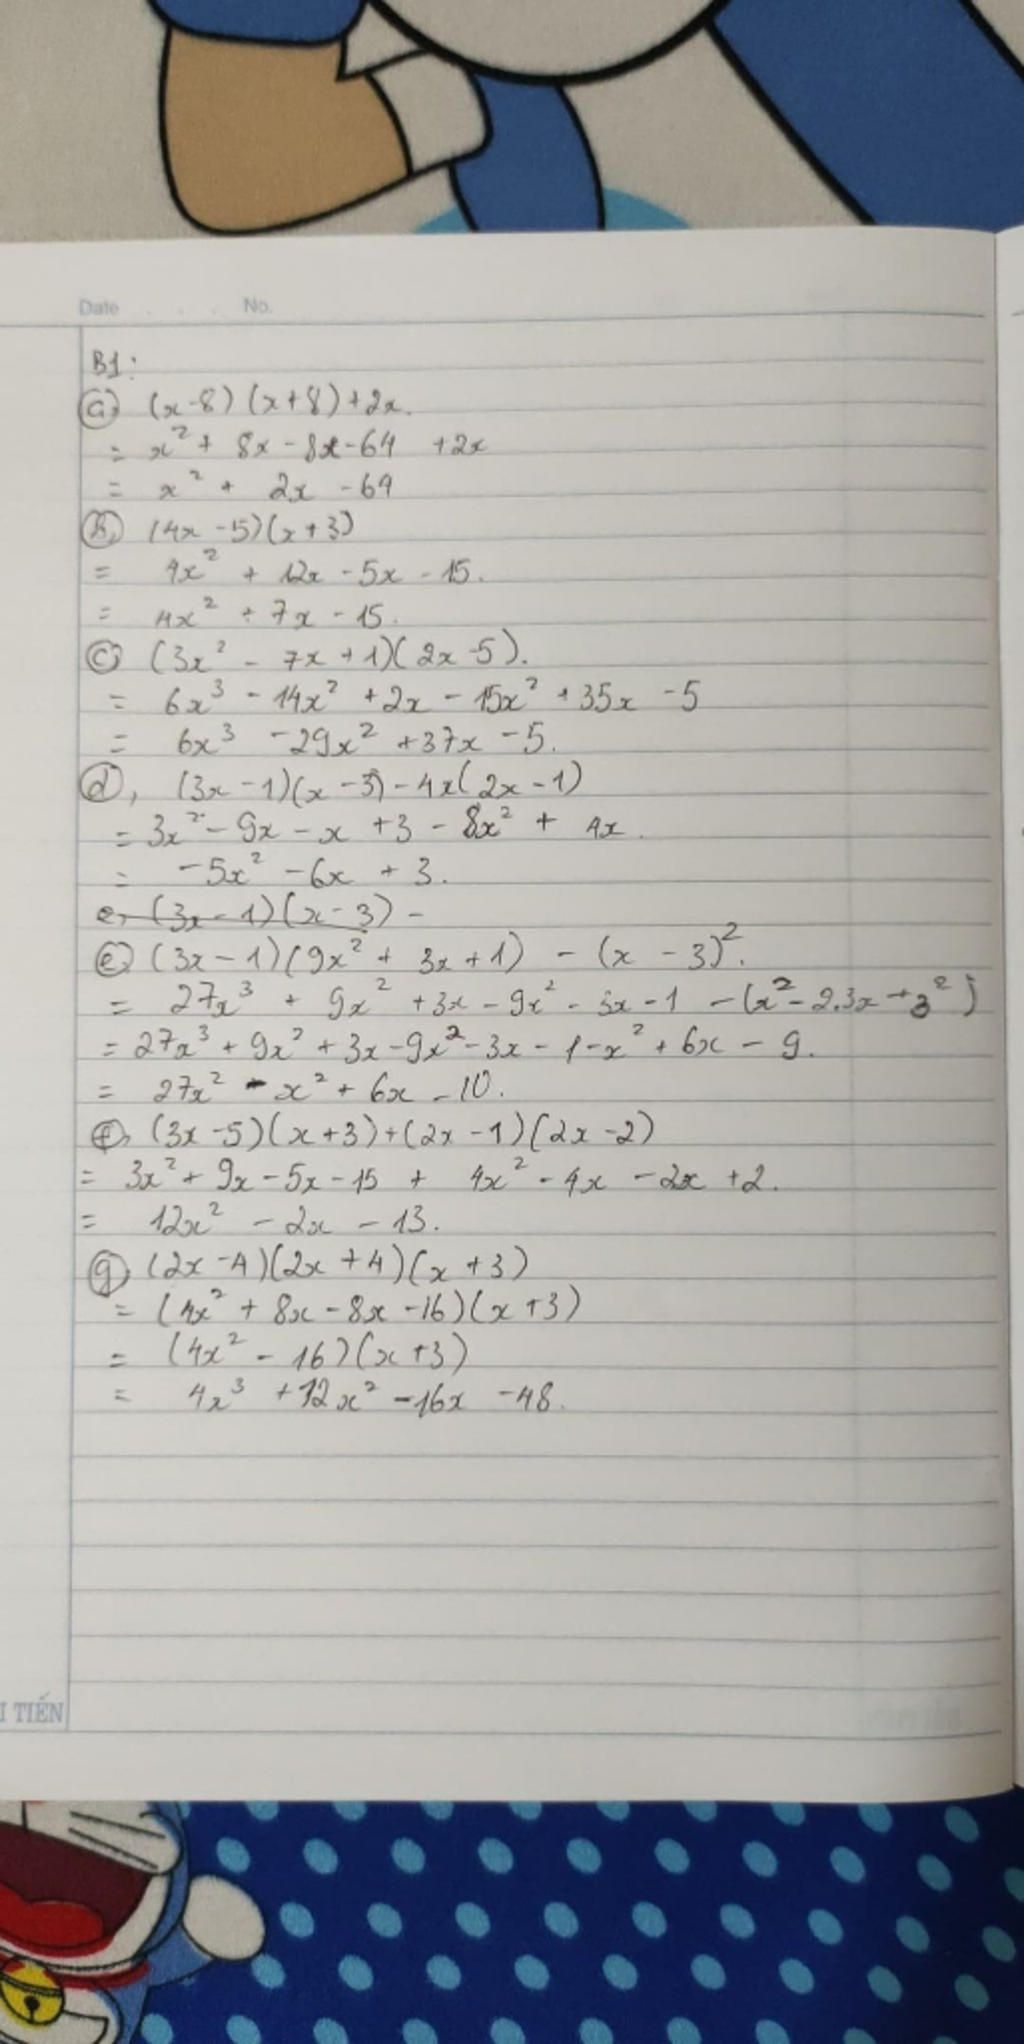 Date . . . No.
B1:
a) (x-8)(x+8)+2x.
= x² + 8x - 8x - 64 + 2x
= x² + 2x - 64
b, (4x - 5)(x + 3)
= 4x² + 12x - 5x - 15.
= 4x² + 7x - 15.
c) (3x² - 7x + 1)(2x - 5).
= 6x³ - 14x² + 2x - 15x² + 35x - 5
= 6x³ - 29x² + 37x - 5.
d, (3x - 1)(x - 3) - 4x(2x - 1)
= 3x² - 9x - x + 3 - 8x² + 4x.
= -5x² - 6x + 3.
e, (3x - 1)(x - 3) -
e) (3x - 1)(9x² + 3x + 1) - (x - 3)².
= 27x³ + 9x² + 3x - 9x² - 3x - 1 - (x² - 2.3x + 3²)
= 27x³ + 9x² + 3x - 9x² - 3x - 1 - x² + 6x - 9.
= 27x² - x² + 6x - 10.
f, (3x - 5)(x + 3) + (2x - 1)(2x - 2)
= 3x² + 9x - 5x - 15 + 4x² - 4x - 2x + 2.
= 12x² - 2x - 13.
g) (2x - 4)(2x + 4)(x + 3)
= (4x² + 8x - 8x - 16)(x + 3)
= (4x² - 16)(x + 3)
= 4x³ + 12x² - 16x - 48.
I TIẾN